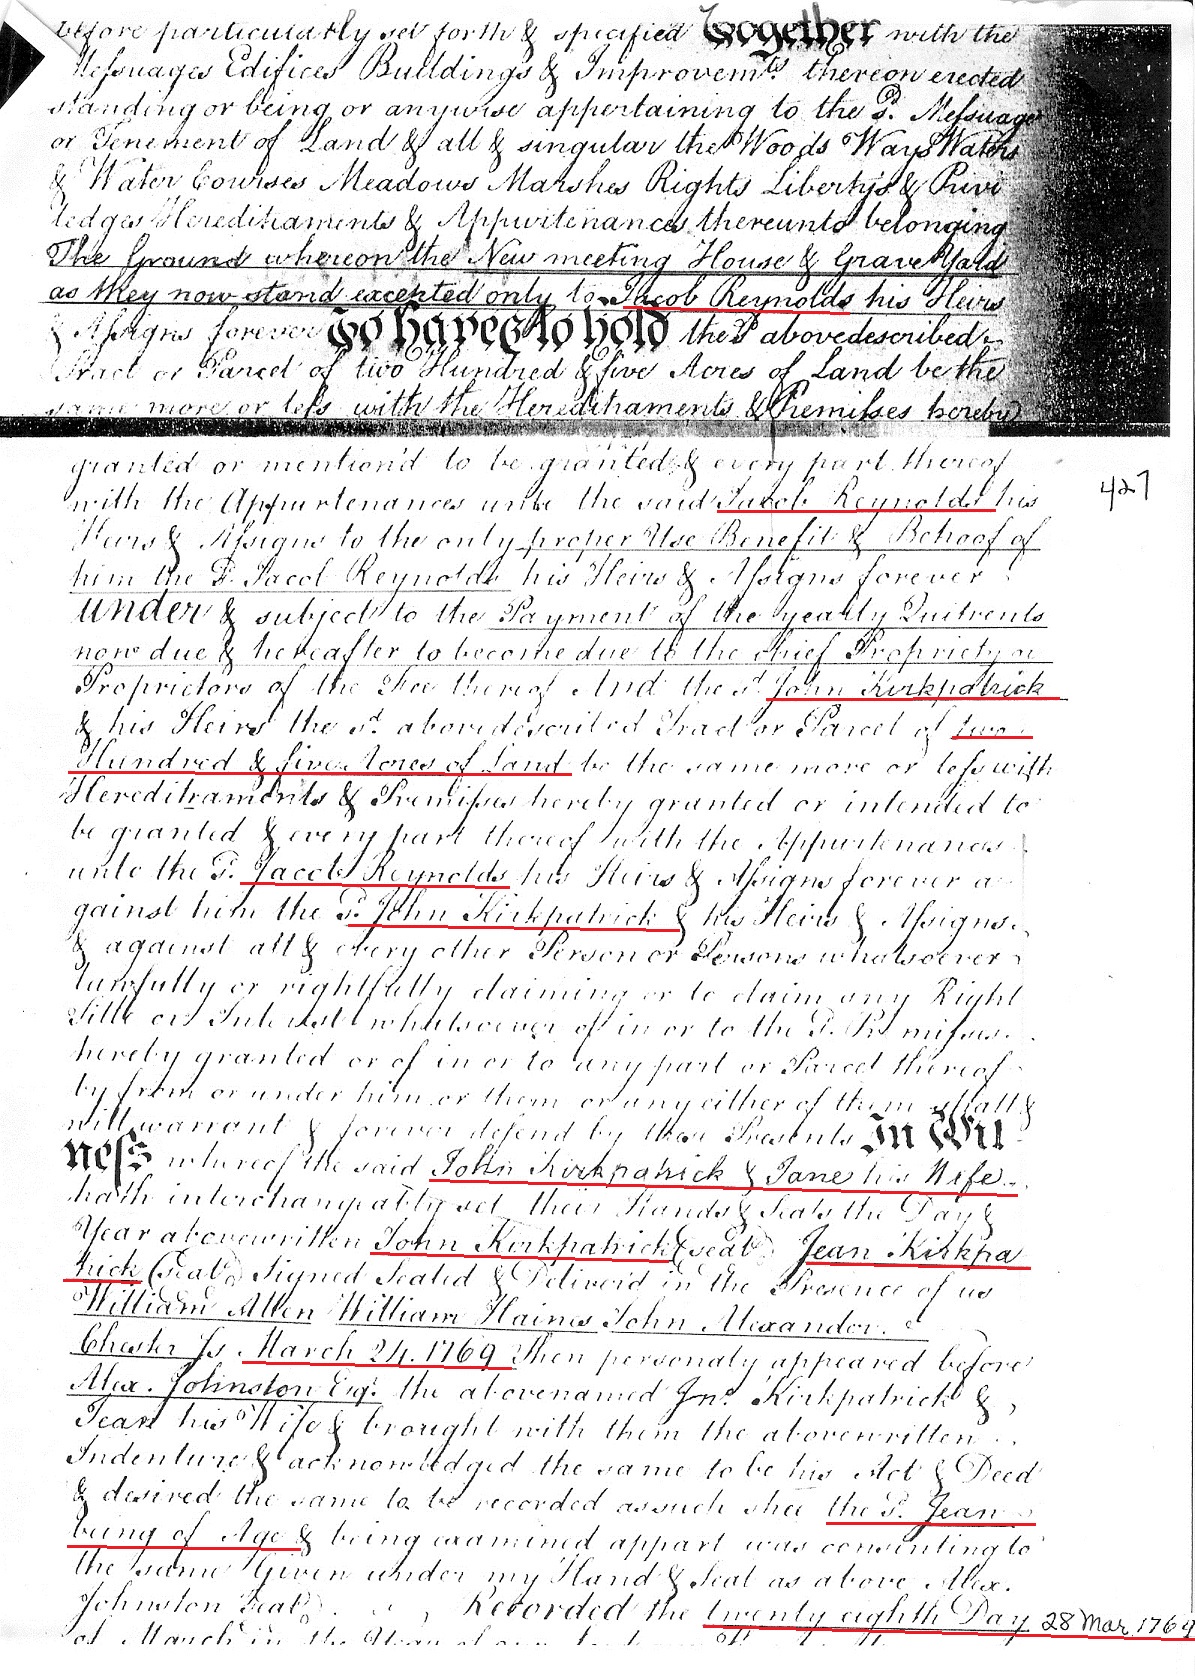 before particularly set forth & specified Together with the
Messuages Edifices Buildings & Improvemts. thereon erected
standing or being or anywise appertaining to the Sd. Messuage
or Tenement of Land & all & singular the Woods Ways Waters
& Water Courses Meadows Marshes Rights Libertys & Privi
ledges Hereditaments & Appurtenances thereunto belonging
The Ground whereon the New meeting House & Grave Yard
as they now stand excepted only to Jacob Reynolds his Heirs
& Assigns forever To have & to hold the Sd abovedescribed
Tract or Parcel of two Hundred & five Acres of Land be the
same more or less with the Hereditaments & Premisses hereby
granted or mention'd to be granted & every part thereof
with the Appurtenances unto the said Jacob Reynolds his
427
Heirs & Assigns to the only proper Use Benefit & Behoof of
him the Sd. Jacob Reynolds his Heirs & Assigns forever
under & subject to the Payment of the yearly Quitrents
now due & hereafter to become due to the chief Proprietor or
Proprietors of the Fee thereof And the sd. John Kirkpatrick
& his Heirs the sd. abovedescribed Tract or Parcel of two
Hundred & five Acres of Land be the same more or less with
Hereditraments & Premisses hereby granted or intended to
be granted & every part thereof with the Appurtenances
unto the Sd. Jacob Reynolds his Heirs & Assigns forever a
gainst him the Sd. John Kirkpatrick & his Heirs & Assigns
& against all & every other Person or Persons whatsoever
lawfully or rightfully claiming or to claim any Right
Title or Interest whatsoever of in or to the Sd. Premisses
hereby granted or of in or to any part or Parcel thereof
by from or under him or them or any either of them shall &
will warrant & forever defend by these Presents In Wit
ness whereof the said John Kirkpatrick & Jane his Wife
hath interchangably set their Hands & Seals the Day &
Year abovewritten John Kirkpatrick (seal) Jean Kirkpa
trick (seal) Signed Sealed & Deliverd in the Presence of us
William Allen William Haines John Alexander.
Chester Ss March 24. 1769 Then personaly appeared before
Alex. Johnston Esqr. the abovenamed Jno. Kirkpatrick &
Jean his Wife & brought with them the abovewritten
Indenture & acknowledged the same to be his Act & Deed
& desired the same to be recorded as such shee the Sd. Jean
being of Age & being examined appart was consenting to
the same Given under my Hand & Seal as above Alex.
Johnston Seal Recorded the twenty eighth Day 28 Mar 1769
of March in the Year of our